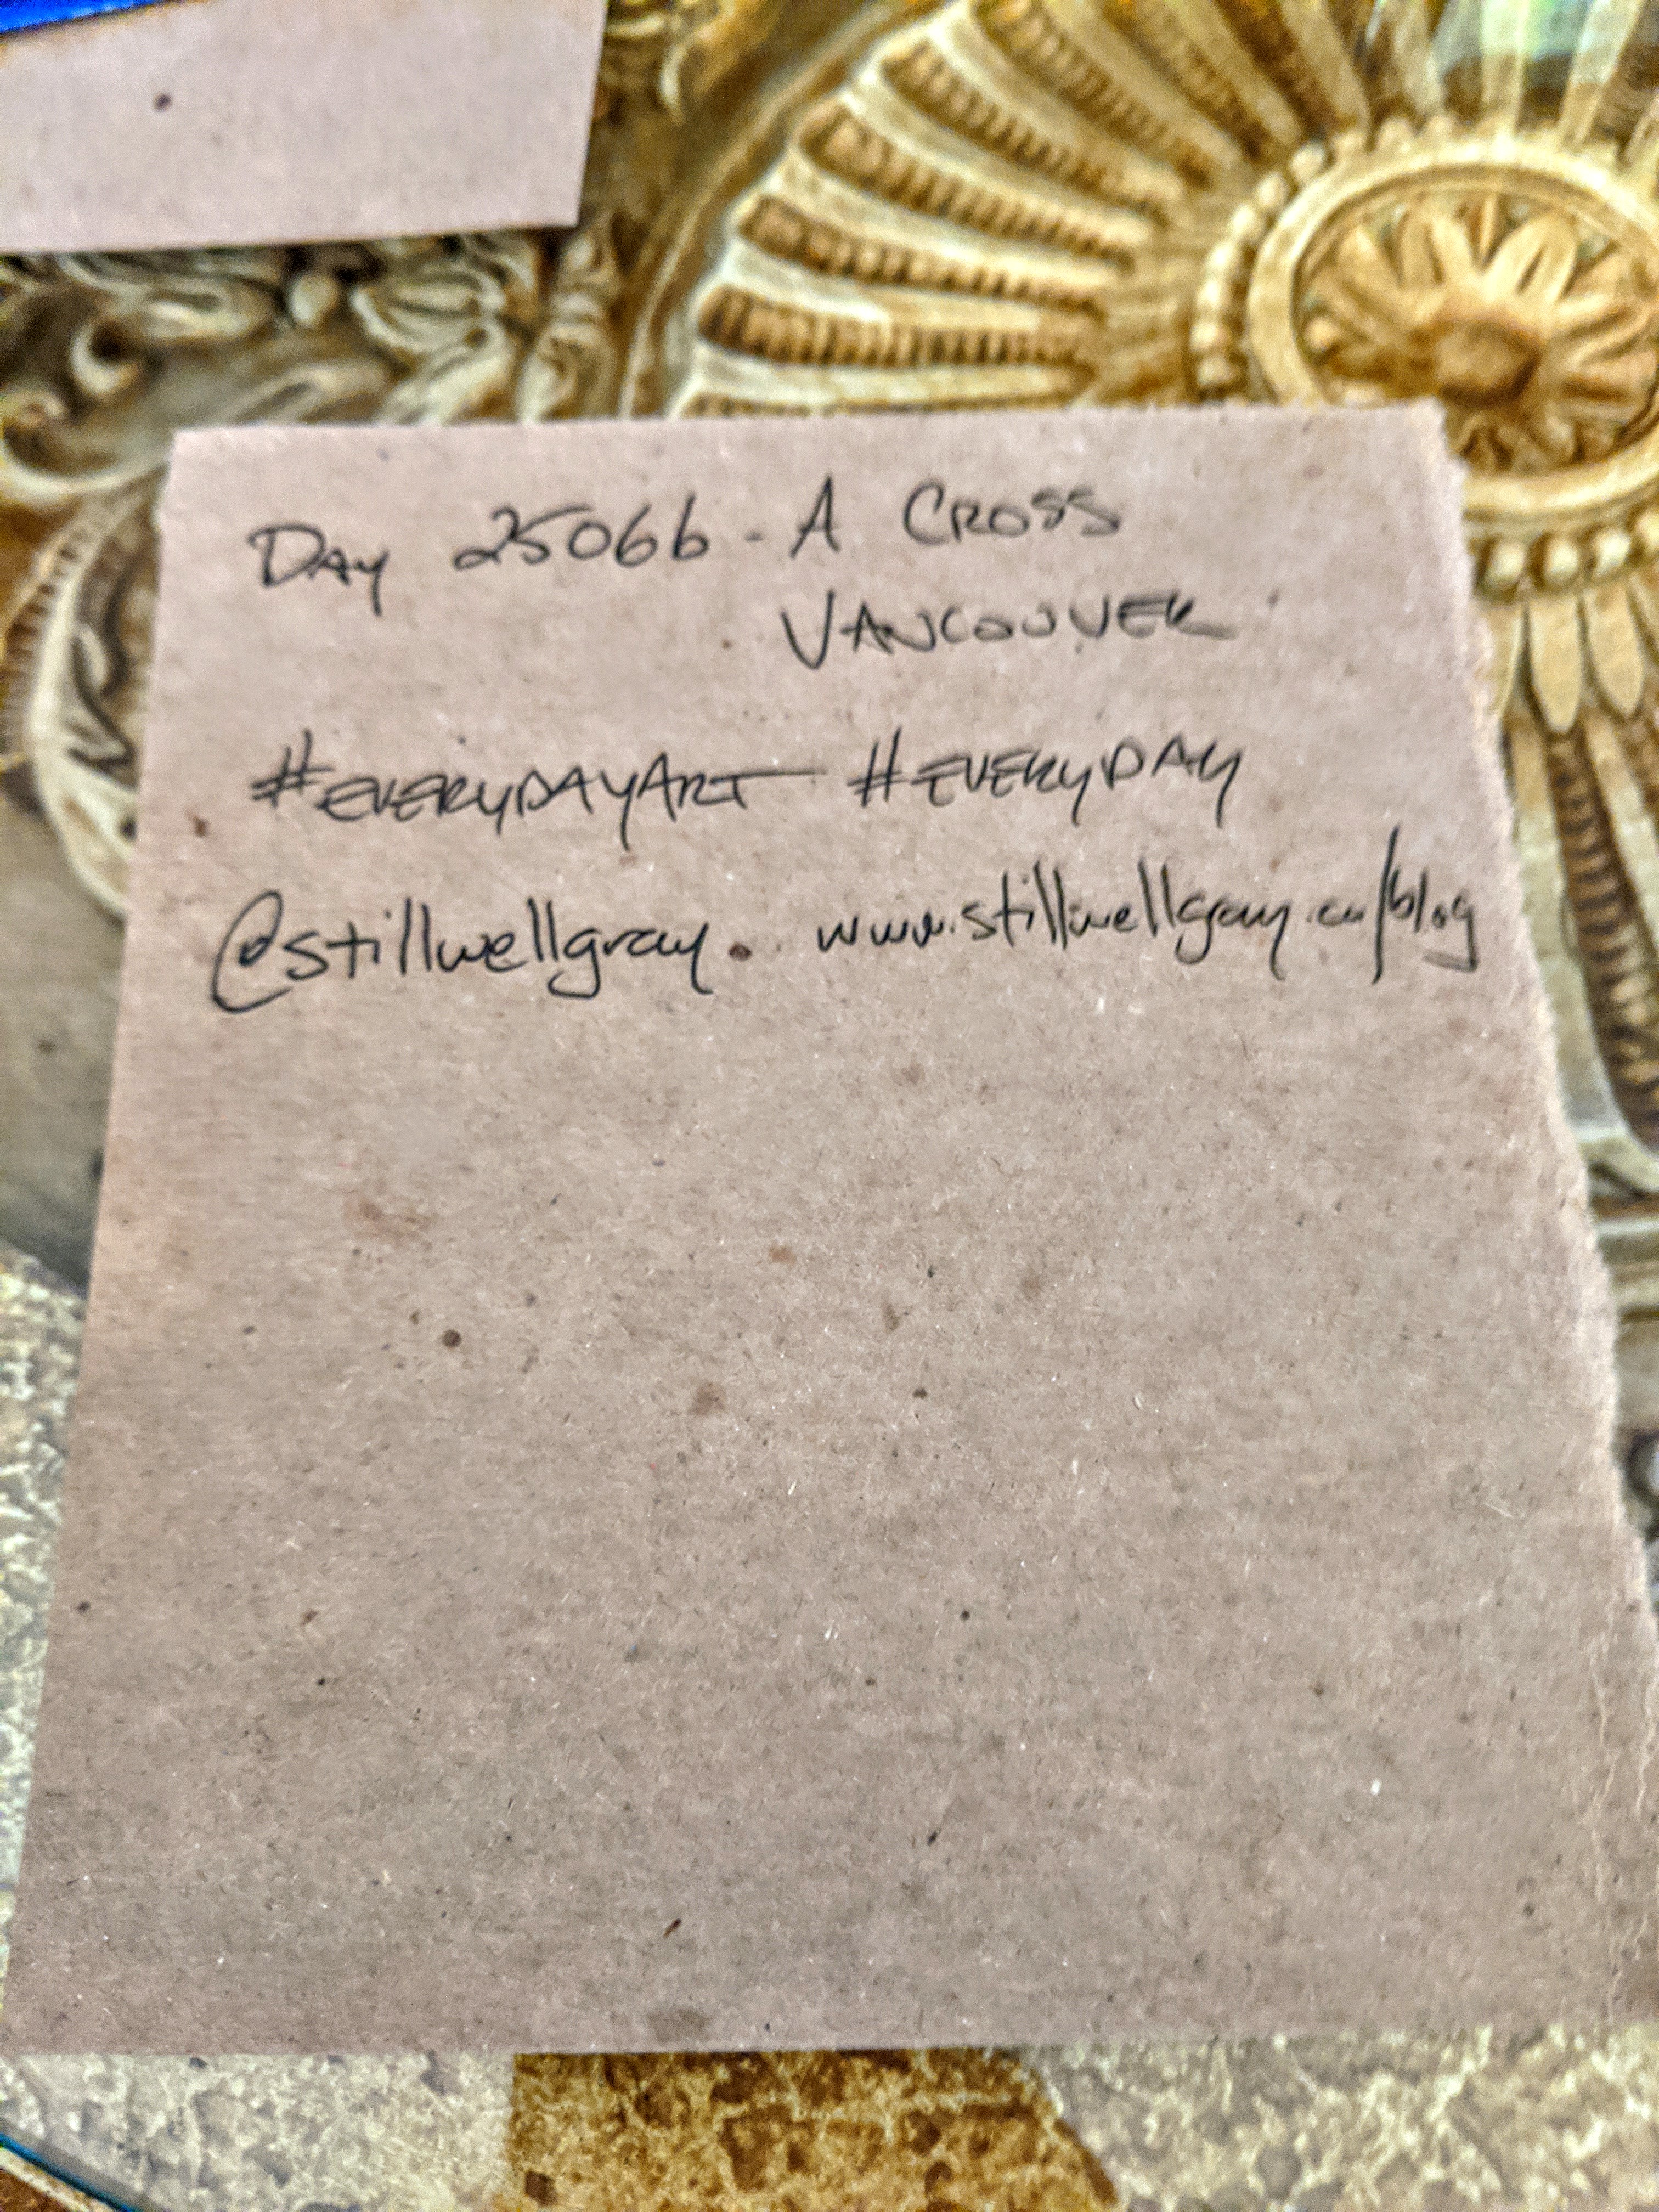 Day 25066 - A Cross
Vancouver
#EVERYDAYART #EVERYDAY
@stillwellgray. www.stillwellgray.ca/blog